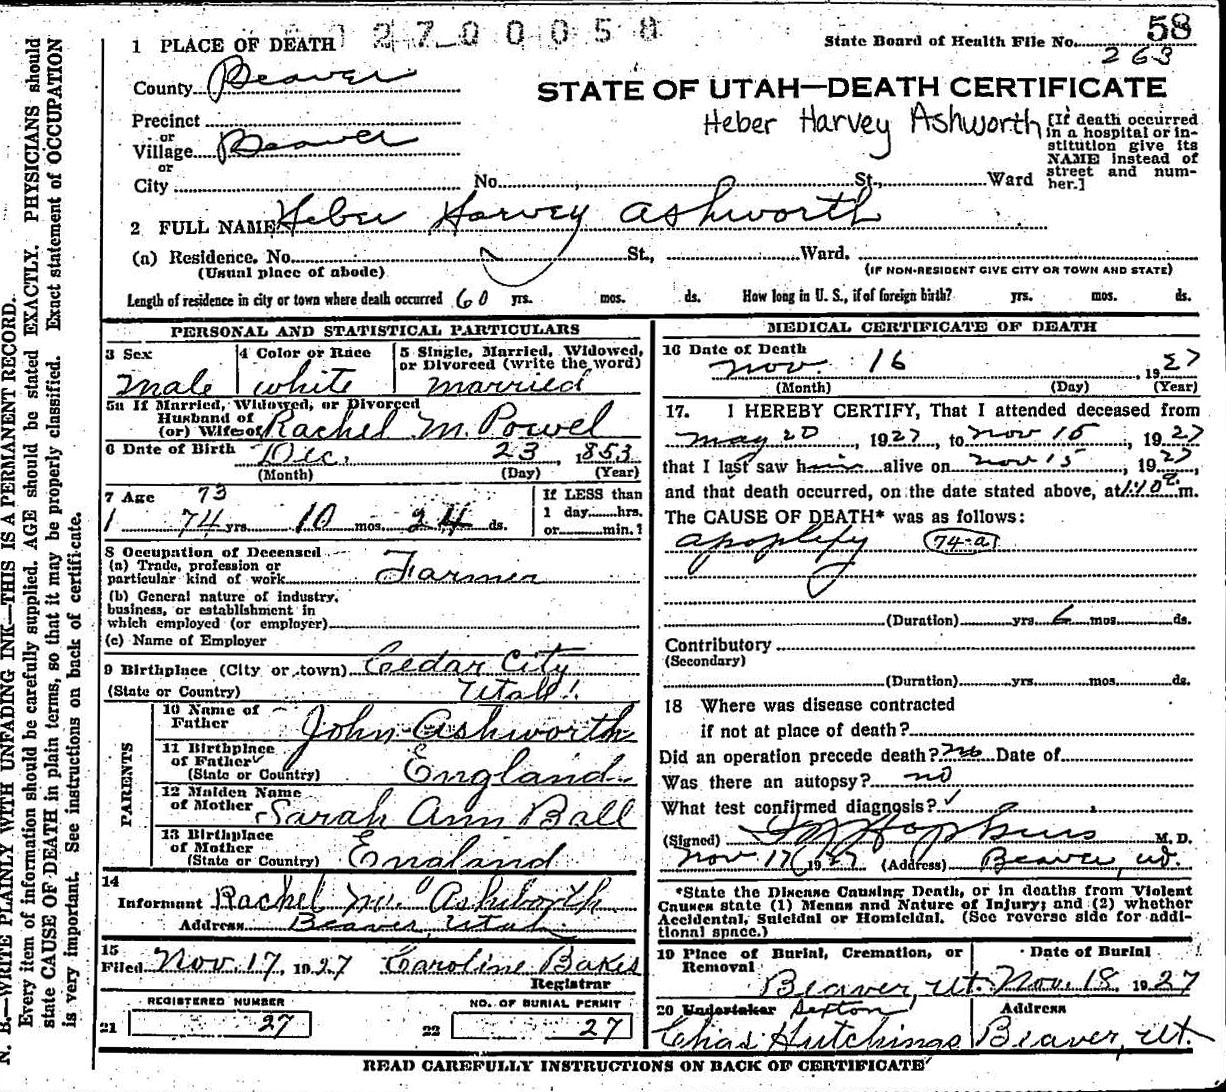 12700058
58
State Board of Health File No.
263
1 PLACE OF DEATH
County Beaver
STATE OF UTAH—DEATH CERTIFICATE
Heber Harvey Ashworth
Precinct
or
Village Beaver
or
City No. St., Ward
[If death occurred
in a hospital or in-
stitution give its
NAME instead of
street and num-
ber.]
2 FULL NAME Heber Harvey Ashworth
(a) Residence. No. St., Ward.
(Usual place of abode) (IF NON-RESIDENT GIVE CITY OR TOWN AND STATE)
Length of residence in city or town where death occurred 60 yrs. mos. ds. How long in U. S., if of foreign birth? yrs. mos. ds.
PERSONAL AND STATISTICAL PARTICULARS
3 Sex
Male
4 Color or Race
white
5 Single, Married, Widowed,
or Divorced (write the word)
married
5a If Married, Widowed, or Divorced
Husband of
(or) Wife of Rachel M. Powel
6 Date of Birth Dec. 23, 1853
(Month) (Day) (Year)
7 Age 73
74 yrs. 10 mos. 24 ds.
If LESS than
1 day, hrs.
or min.?
8 Occupation of Deceased
(a) Trade, profession or
particular kind of work Farmer
(b) General nature of industry,
business, or establishment in
which employed (or employer)
(c) Name of Employer
9 Birthplace (City or town) Cedar City
(State or Country) Utah
PARENTS
10 Name of
Father John Ashworth
11 Birthplace
of Father
(State or Country) England
12 Maiden Name
of Mother Sarah Ann Ball
13 Birthplace
of Mother
(State or Country) England
14
Informant Rachel M. Ashworth
Address Beaver, Utah
15
Filed Nov. 17, 1927 Caroline Bakes
Registrar
REGISTERED NUMBER
21 27
NO. OF BURIAL PERMIT
22 27
MEDICAL CERTIFICATE OF DEATH
16 Date of Death
Nov. 16, 1927
(Month) (Day) (Year)
17. I HEREBY CERTIFY, That I attended deceased from
May 20, 1927, to Nov 15, 1927
that I last saw him alive on Nov 15, 1927,
and that death occurred, on the date stated above, at 1:10 a m.
The CAUSE OF DEATH* was as follows:
apoplexy 74-a
(Duration) yrs. 6 mos. ds.
Contributory
(Secondary)
(Duration) yrs. mos. ds.
18 Where was disease contracted
if not at place of death?
Did an operation precede death? No Date of
Was there an autopsy? no
What test confirmed diagnosis?
(Signed) Hopkins M. D.
Nov 17, 1927 (Address) Beaver, Ut.
*State the Disease Causing Death, or in deaths from Violent
Causes state (1) Menns and Nature of Injury; and (2) whether
Accidental, Suicidal or Homicidal. (See reverse side for addi-
tional space.)
19 Place of Burial, Cremation, or
Removal
Beaver, Ut.
Date of Burial
Nov. 18 1927
20 Undertaker Sexton
Chas Hutchings
Address
Beaver, Ut.
READ CAREFULLY INSTRUCTIONS ON BACK OF CERTIFICATE
N. B.—WRITE PLAINLY WITH UNFADING INK—THIS IS A PERMANENT RECORD.
Every item of information should be carefully supplied. AGE should be stated EXACTLY. PHYSICIANS should
state CAUSE OF DEATH in plain terms, so that it may be properly classified. Exact statement of OCCUPATION
is very important. See instructions on back of certificate.